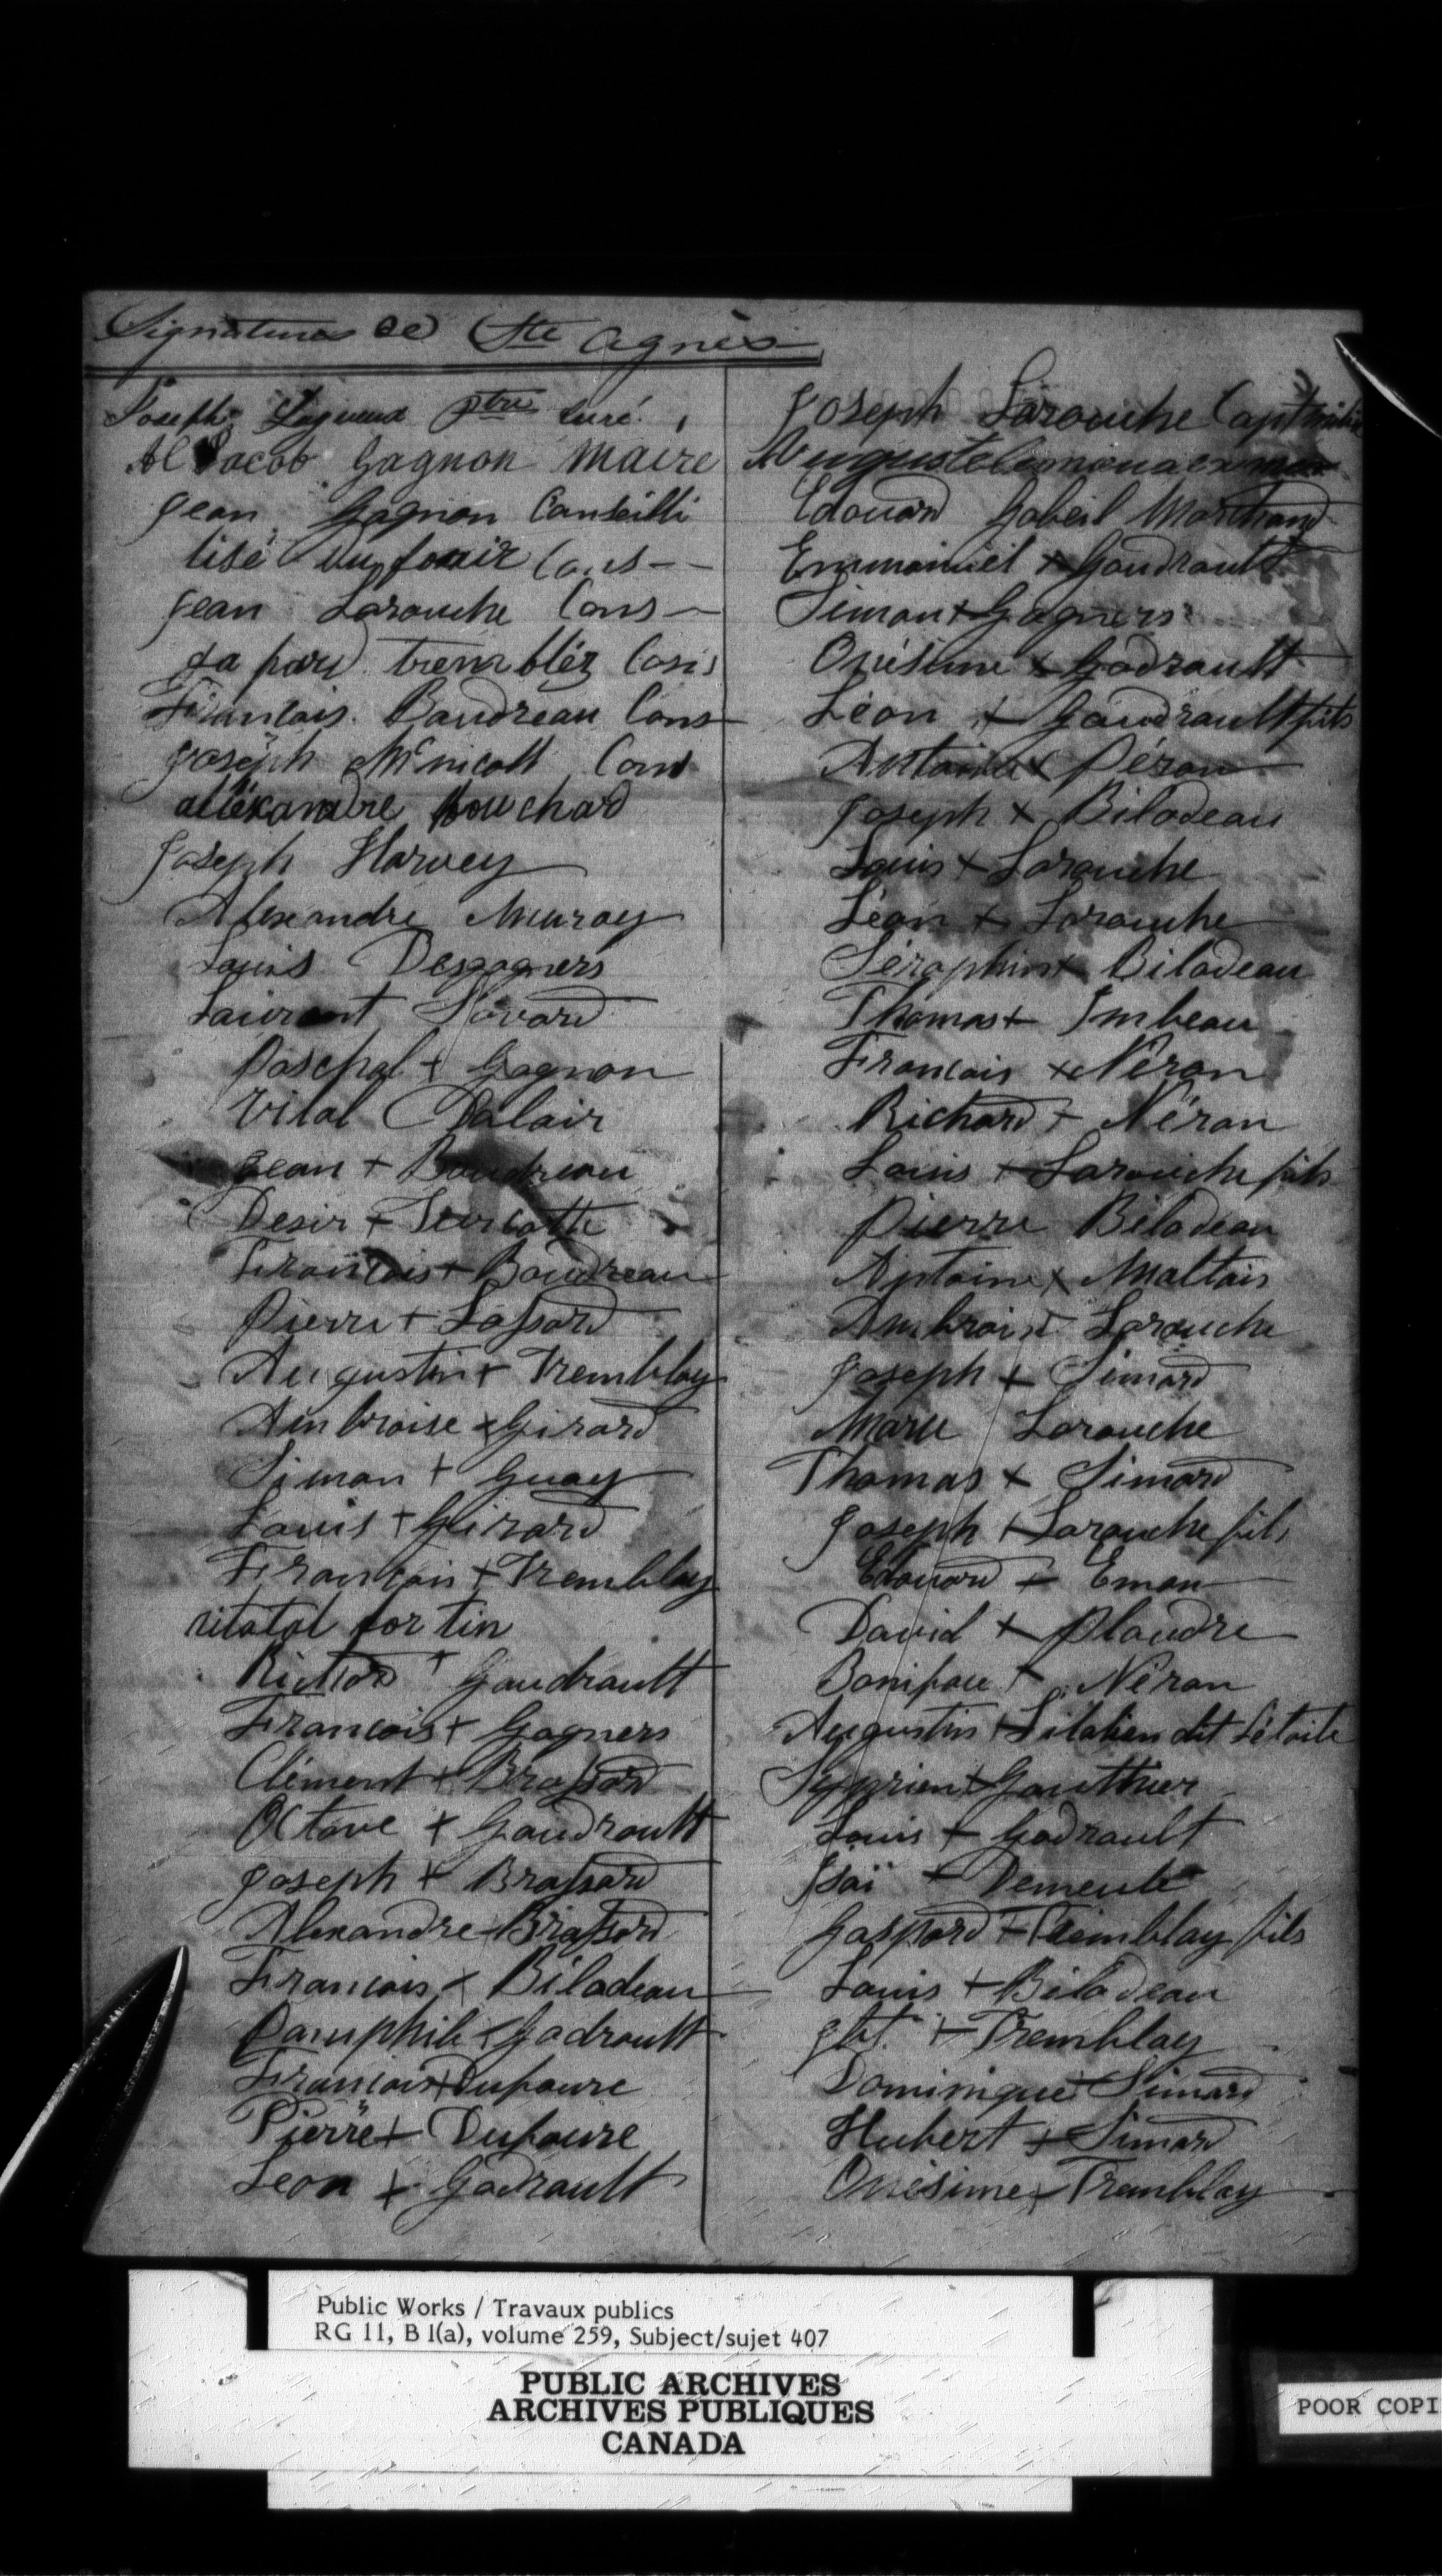 Signatures de Ste Agnès
Joseph Lagueux Ptre curé
Al Jacob Gagnon Maire
Jean Gagnon Conseilli
lisé Dufour Cons
Jean Larouche Cons
ga pard tremblèz Cosis
Francois Baudreau Cons
Joseph McNicoll Cons
allèxandre bouchard
Joseph Harvey
Alexandre Muray
Louis Desgagners
Laurent Savard
Paschal + Gagnon
Vital Dalair
Jean + Boudreau
Desir + Turcotte
Francois + Boudreau
Pierre + Lassard
Augustin + Tremblay
Ambroise x Girard
Simon + Guay
Louis + Girard
Francois + Tremblay
for tin
Richard + Gaudrault
Francois + Gagners
Clément + Brassard
Octave + Gaudrault
Joseph + Brassard
Alexandre Brassard
Francois x Biladeau
Pamphile x Godrault
Francois + Dufoure
Pierre + Dufoure
Leon + Godrault
Joseph Larouche Capt milice
Auguste
Edouard Gobeil Marchand
Emmanuel + Gaudrault
Simon + Gagners
Onésime x Godrault
Léon + Gaudrault fils
Antoine x Péron
Joseph x Bilodeau
Louis + Larouche
Léon + Larouche
Séraphin x Bilodeau
Thomas + Imbeau
Francois x Néron
Richard + Néron
Louis + Larouche fils
Pierre Bilodeau
Antoine x Maltais
Ambrois + Larouche
Joseph + Simard
Marie Larouche
Thomas x Simard
Joseph + Larouche fils
Edouard + Emon
David + Plaudre
Boniface + Néron
Augustin + dit Létoile
Syprien + Gauthier
Louis + Godrault
Isaï + Demeule
Gaspard + Tremblay fils
Louis + Biladeau
+ Tremblay
Dominique + Simard
Hubert + Simard
Onésime + Tremblay
Public Works / Travaux publics
RG 11, B 1(a), volume 259, Subject/sujet 407
PUBLIC ARCHIVES
ARCHIVES PUBLIQUES
CANADA
POOR COPI